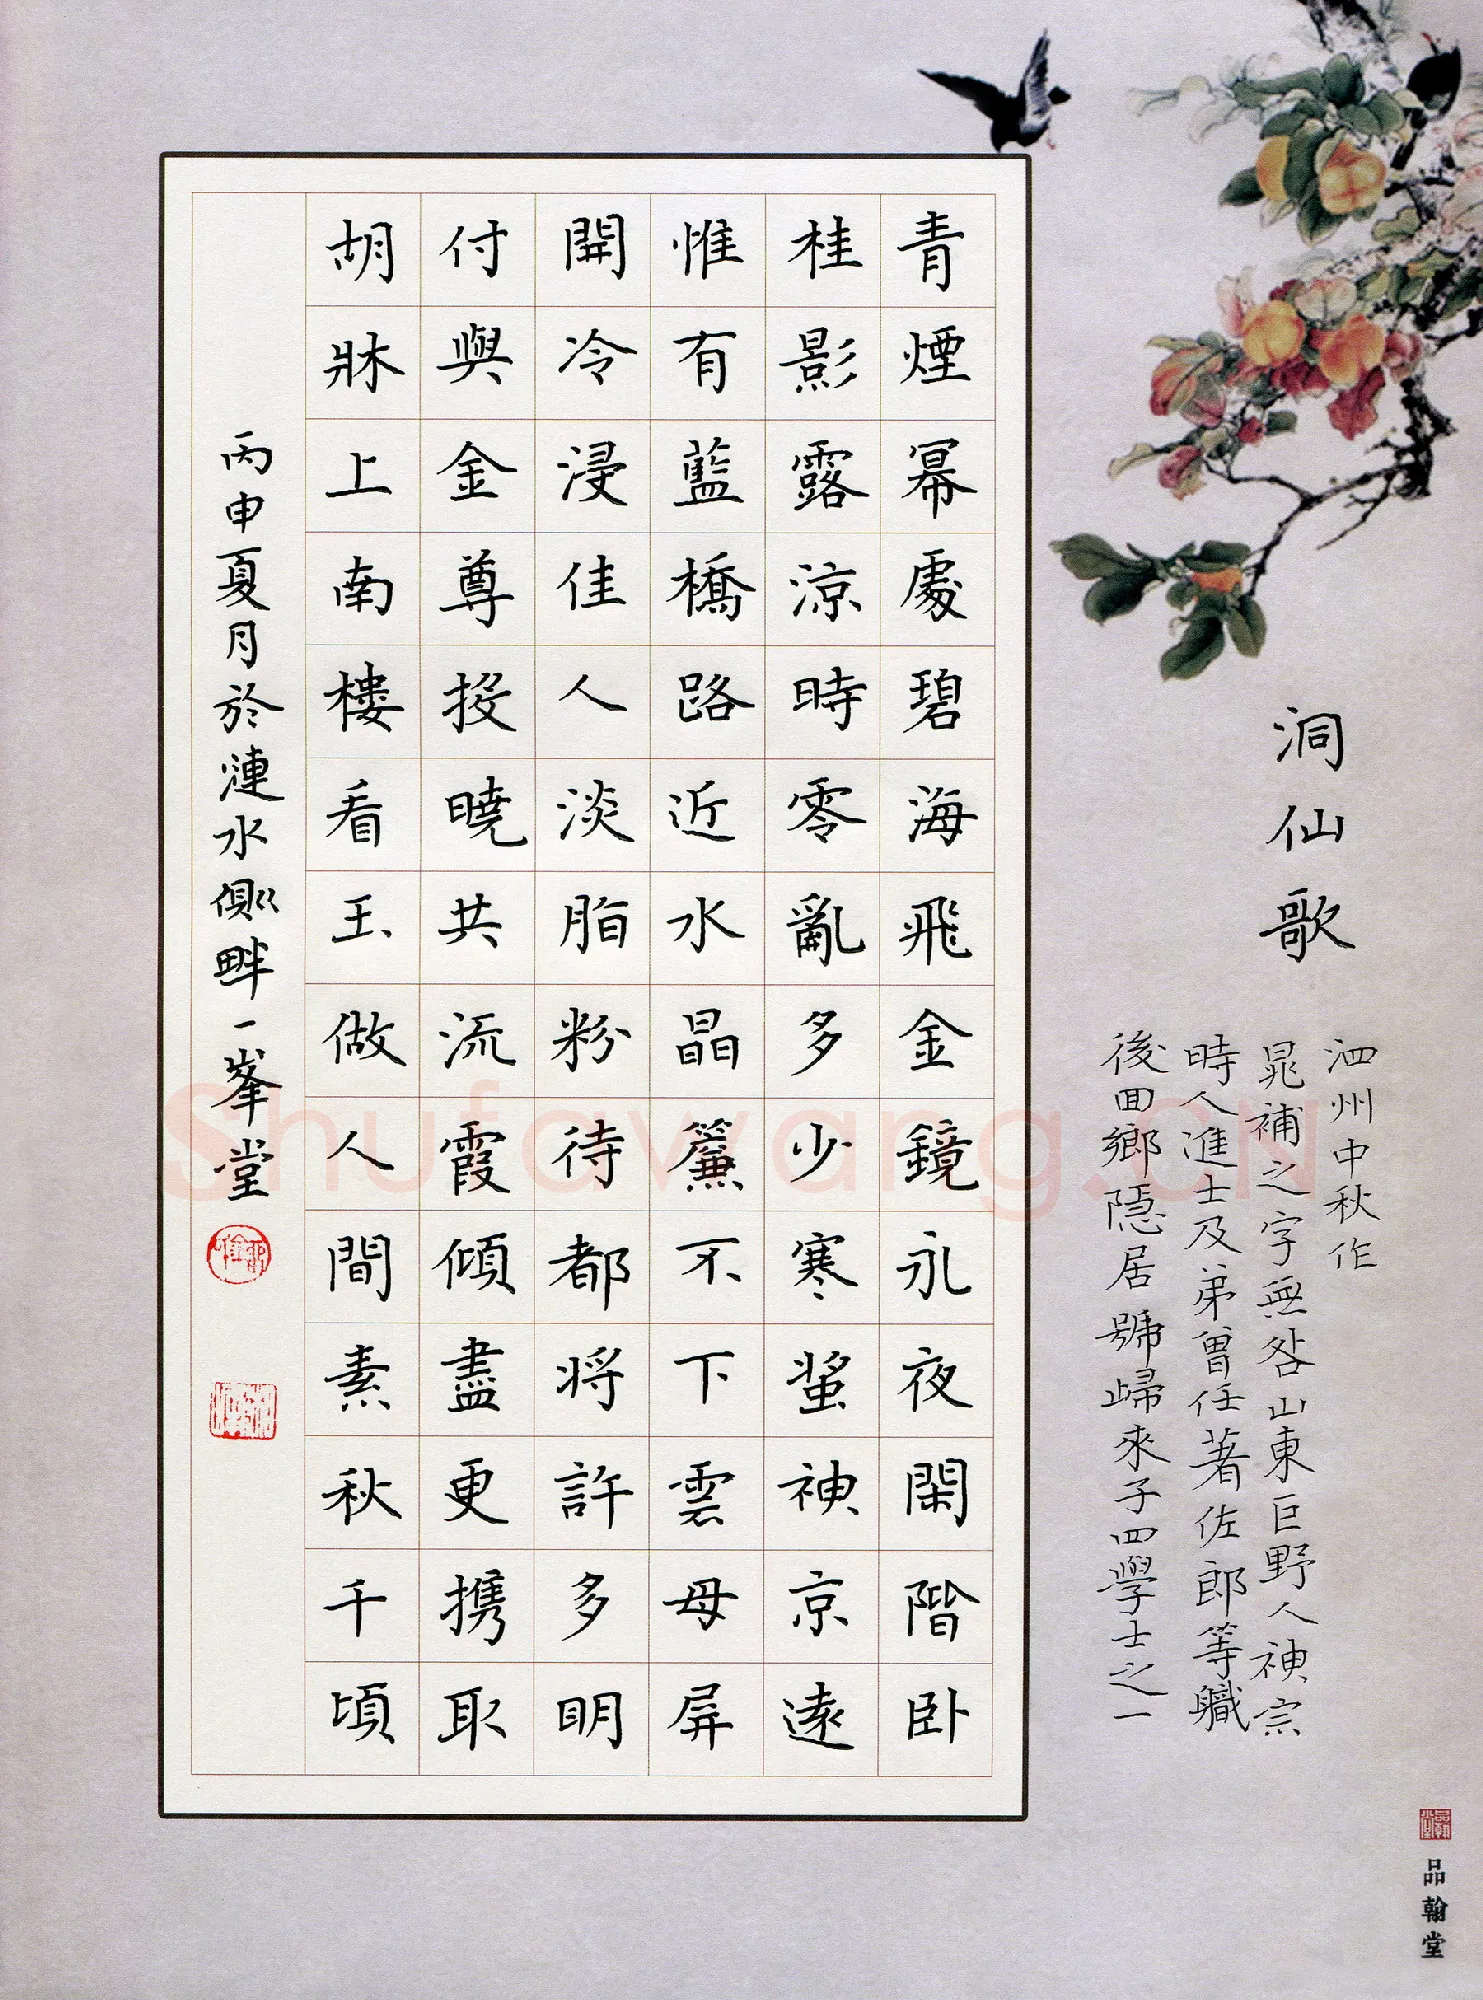 洞仙歌
泗州中秋作
晁補之字無咎山東巨野人神宗
時人進士及弟曾任著佐郎等職
後回鄉隱居號歸來子四學士之一
青煙幂處碧海飛金鏡永夜閑階卧
桂影露涼時零亂多少寒螀神京遠
惟有藍橋路近水晶簾不下雲母屏
開冷浸佳人淡脂粉待都将許多明
付與金尊投曉共流霞傾盡更携取
胡牀上南樓看玉做人間素秋千頃
丙申夏月於漣水側畔一峯堂
品翰堂
Shufawang.CN